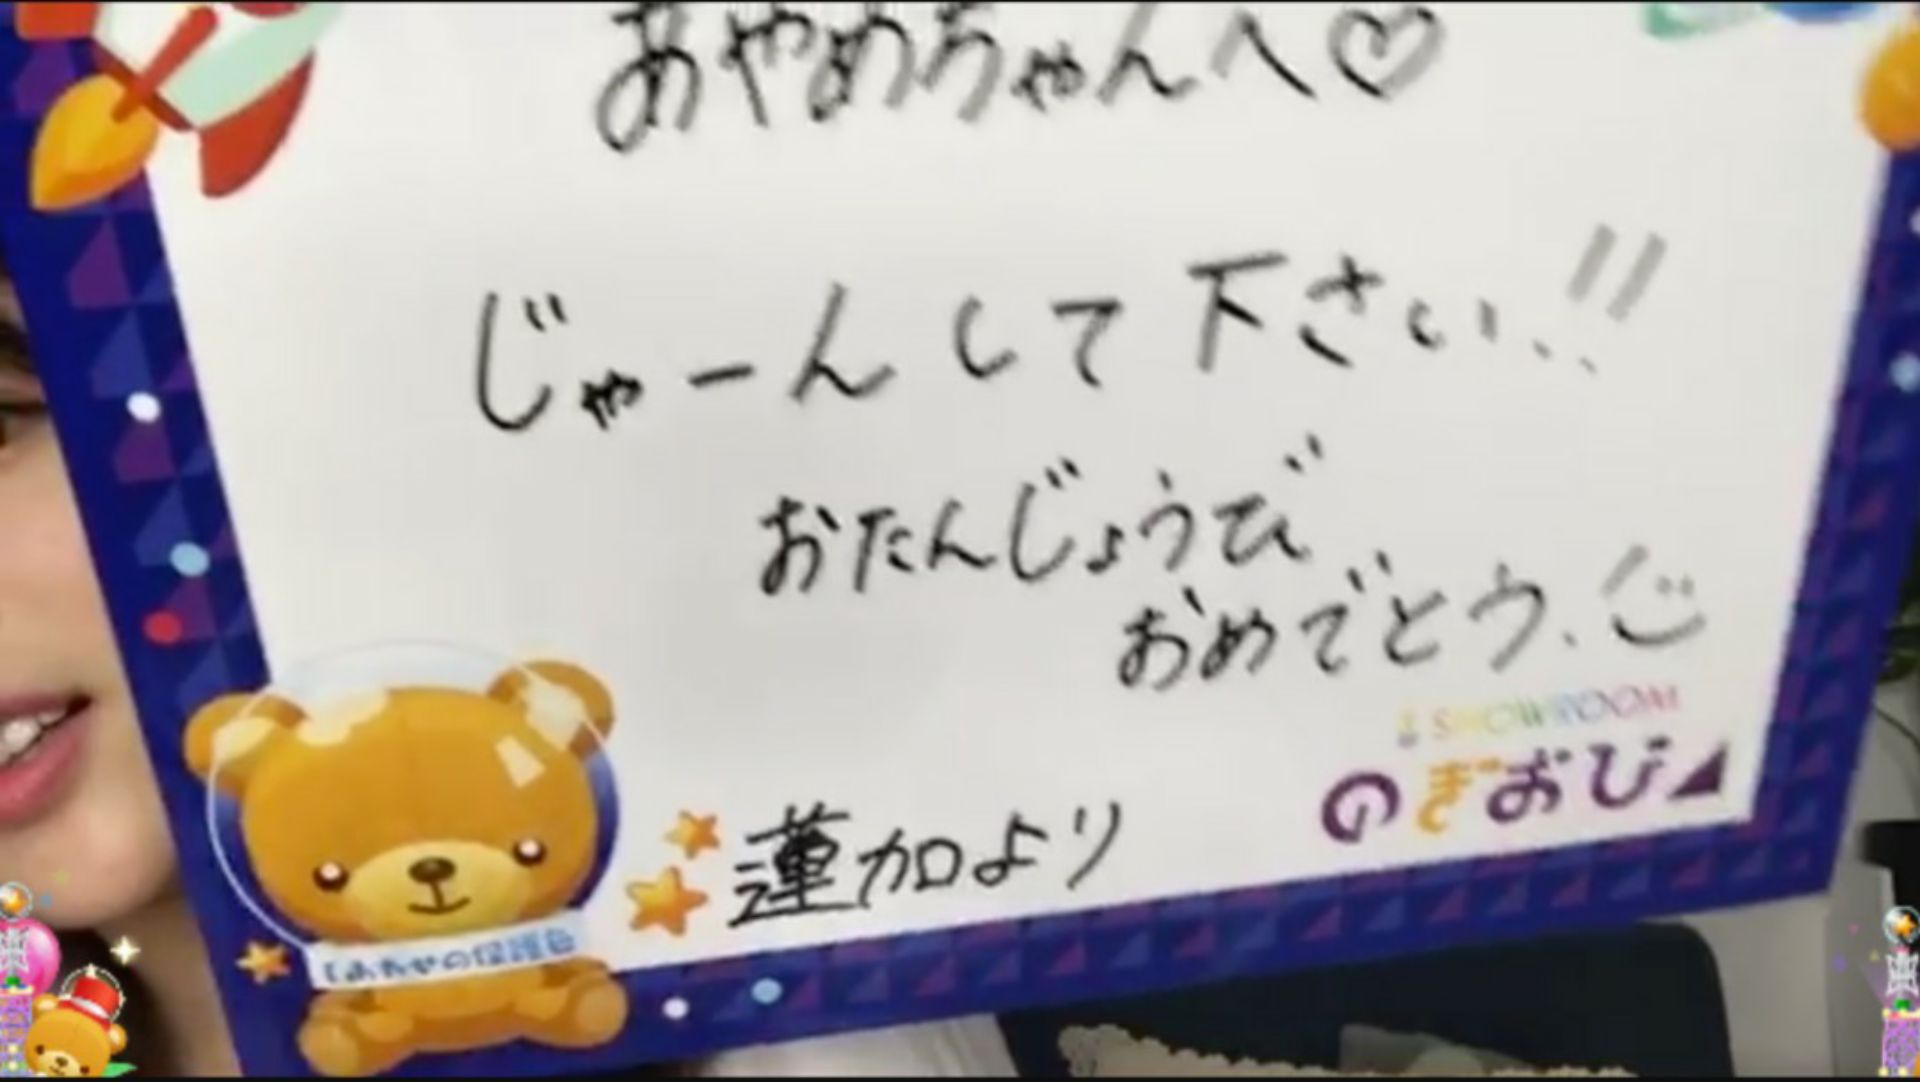 あやめちゃんへ♡
じゃーんして下さい!!
おたんじょうび
おめでとう.
SHOWROOM
のぎおび
蓮加より
しあわせの保護色